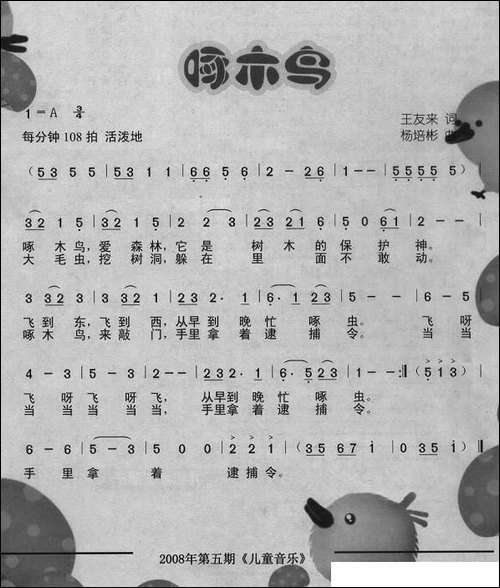 啄木鸟
1=A 3/4
王友来 词
每分钟 108 拍 活泼地
杨培彬 曲
(5 3 5 5 | 5 3 1 1 | 6 6 5 6 | 2 - 2 6 | 1 - - | 5 5 5 5 5 )
3 2 1 5 | 3 2 1 5 | 2 2 3 | 2 3 2 1 6 | 5 0 6 1 | 2 - - |
啄 木 鸟，爱 森 林，它 是 树 木 的 保 护 神。
大 毛 虫，挖 树 洞，躲 在 里 面 不 敢 动。
3 3 2 3 | 3 3 2 1 | 2 3 2 · 1 | 6 · 1 2 3 | 5 - - | 6 - 5 |
飞 到 东，飞 到 西，从 早 到 晚 忙 啄 虫。 飞 呀
啄 木 鸟，来 敲 门，手 里 拿 着 逮 捕 令。 当 当
4 - 3 | 5 - 3 | 2 - - | 2 3 2 · 1 | 6 · 5 2 3 | 1 - - :‖ ( 5 1 3 )
飞 呀 飞 呀 飞， 从 早 到 晚 忙 啄 虫。
当 当 当 当 当， 手 里 拿 着 逮 捕 令。
6 - 6 | 5 - 3 | 5 0 0 | 2 2 1 | ( 3 5 6 7 i | 0 3 5 i )
手 里 拿 着 逮 捕 令。
2008年第五期《儿童音乐》